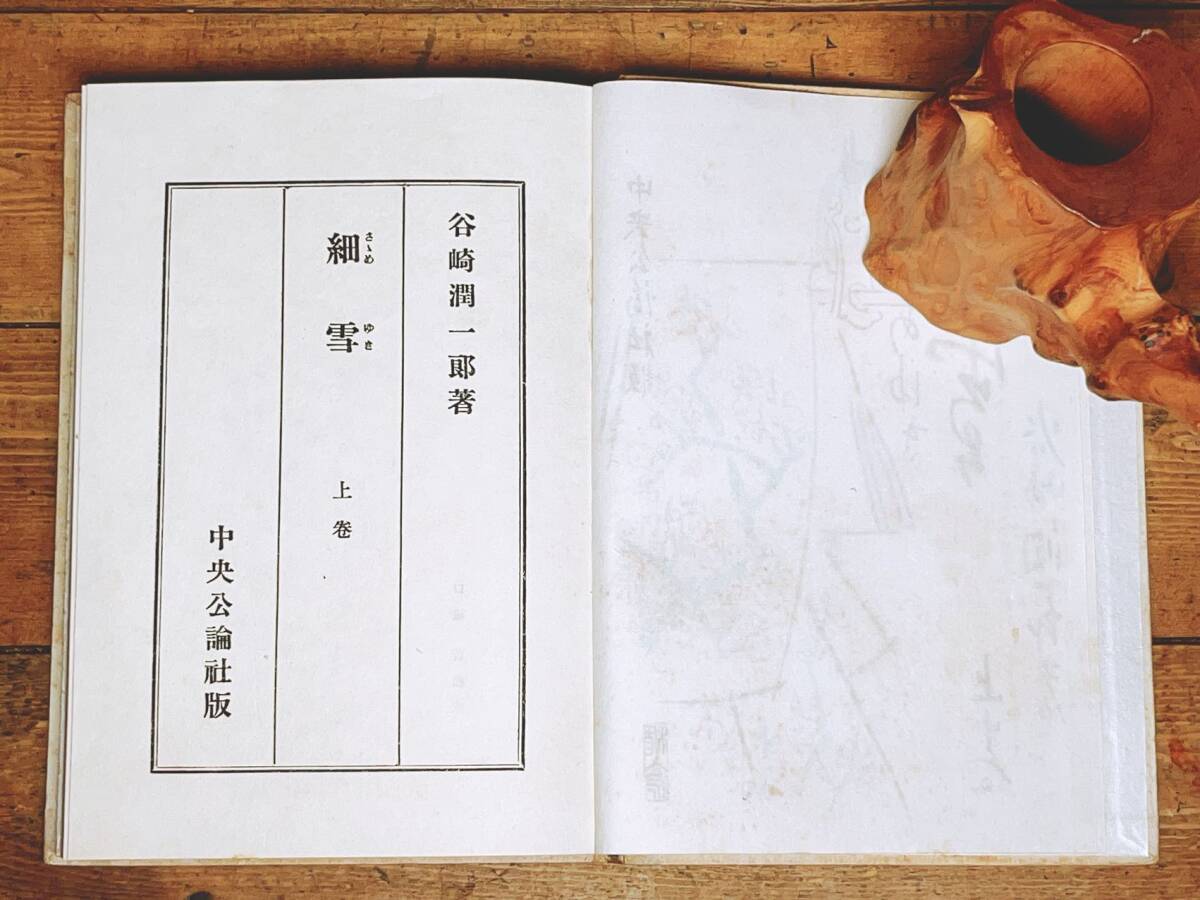 谷崎潤一郎著
細雪
さゝめ
ゆき
上卷
中央公論社版